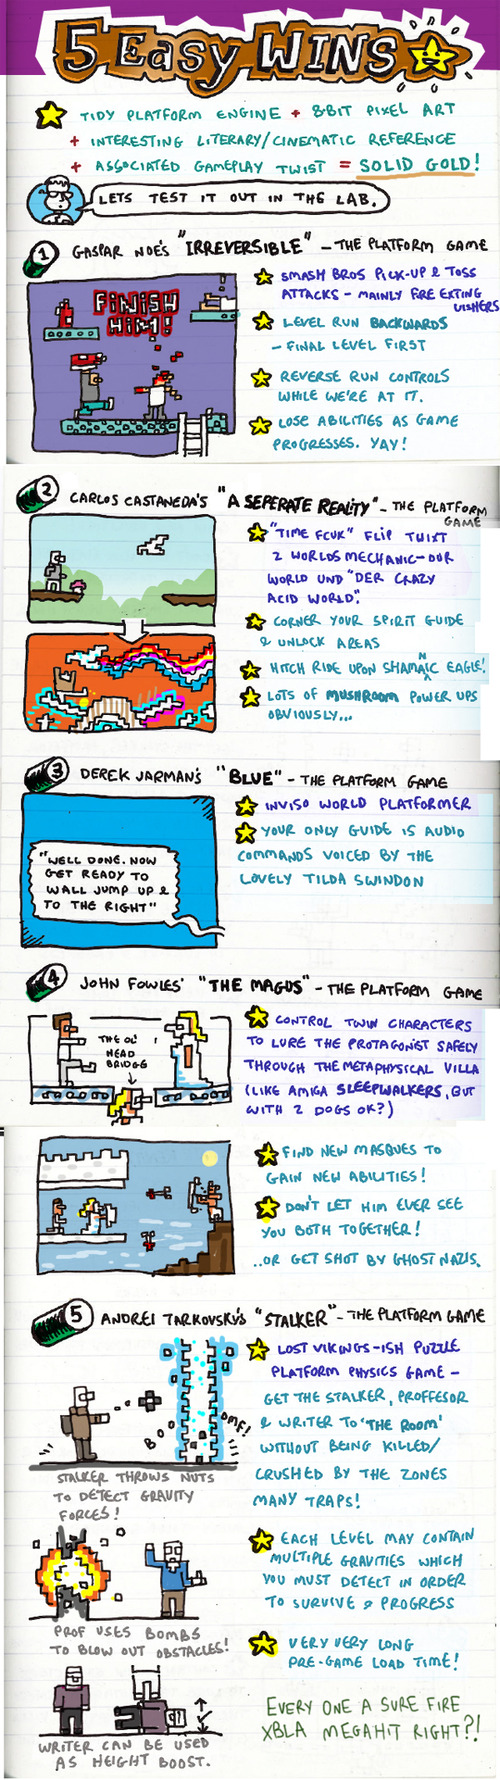 5 Easy WINS
TIDY PLATFORM ENGINE + 8-BIT PIXEL ART
+ INTERESTING LITERARY/CINEMATIC REFERENCE
+ ASSOCIATED GAMEPLAY TWIST = SOLID GOLD!
LETS TEST IT OUT IN THE LAB.
1 GASPAR NOE'S "IRREVERSIBLE" - THE PLATFORM GAME
FINISH
HIM!
SMASH BROS PICK-UP & TOSS
ATTACKS - MAINLY FIRE EXTING
UISHERS
LEVEL RUN BACKWARDS
- FINAL LEVEL FIRST
REVERSE RUN CONTROLS
WHILE WE'RE AT IT.
LOSE ABILITIES AS GAME
PROGRESSES. YAY!
2 CARLOS CASTANEDA'S "A SEPERATE REALITY" - THE PLATFORM
GAME
"TIME FCUK" FLIP TWIXT
2 WORLDS MECHANIC - OUR
WORLD UND "DER CRAZY
ACID WORLD".
CORNER YOUR SPIRIT GUIDE
& UNLOCK AREAS
HITCH RIDE UPON SHAMANIC EAGLE!
LOTS OF MUSHROOM POWER UPS
OBVIOUSLY...
3 DEREK JARMAN'S "BLUE" - THE PLATFORM GAME
"WELL DONE. NOW
GET READY TO
WALL JUMP UP &
TO THE RIGHT"
INVISO WORLD PLATFORMER
YOUR ONLY GUIDE IS AUDIO
COMMANDS VOICED BY THE
LOVELY TILDA SWINDON
4 JOHN FOWLES' "THE MAGUS" - THE PLATFORM GAME
THE OL'
HEAD
BRIDGE
!
CONTROL TWIN CHARACTERS
TO LURE THE PROTAGONIST SAFELY
THROUGH THE METAPHYSICAL VILLA
(LIKE AMIGA SLEEPWALKERS, BUT
WITH 2 DOGS OK?)
FIND NEW MASQUES TO
GAIN NEW ABILITIES!
DON'T LET HIM EVER SEE
YOU BOTH TOGETHER!
..OR GET SHOT BY GHOST NAZIS.
5 ANDREI TARKOVSKY'S "STALKER" - THE PLATFORM GAME
BOOOMF!
STALKER THROWS NUTS
TO DETECT GRAVITY
FORCES!
LOST VIKINGS-ISH PUZZLE
PLATFORM PHYSICS GAME -
GET THE STALKER, PROFFESOR
& WRITER TO 'THE ROOM'
WITHOUT BEING KILLED/
CRUSHED BY THE ZONES
MANY TRAPS!
PROF USES BOMBS
TO BLOW OUT OBSTACLES!
EACH LEVEL MAY CONTAIN
MULTIPLE GRAVITIES WHICH
YOU MUST DETECT IN ORDER
TO SURVIVE & PROGRESS
VERY VERY LONG
PRE-GAME LOAD TIME!
WRITER CAN BE USED
AS HEIGHT BOOST.
EVERY ONE A SURE FIRE
XBLA MEGAHIT RIGHT?!